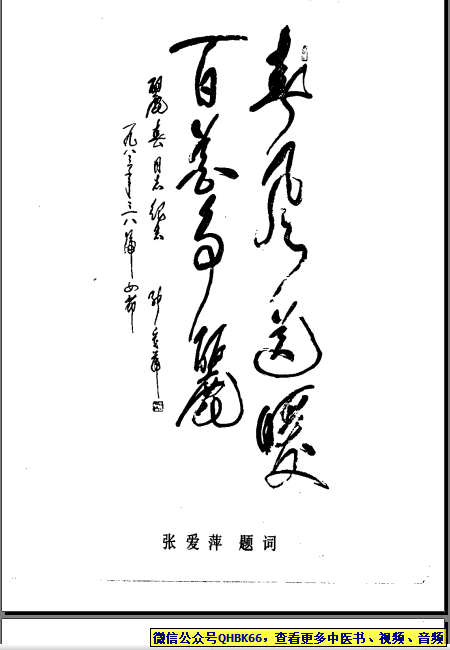 春风送暖
百花争麗
麗春同志纪念
一九八三年三八節
张爱萍
张爱萍 题词
微信公众号QHBK66，查看更多中医书、视频、音频